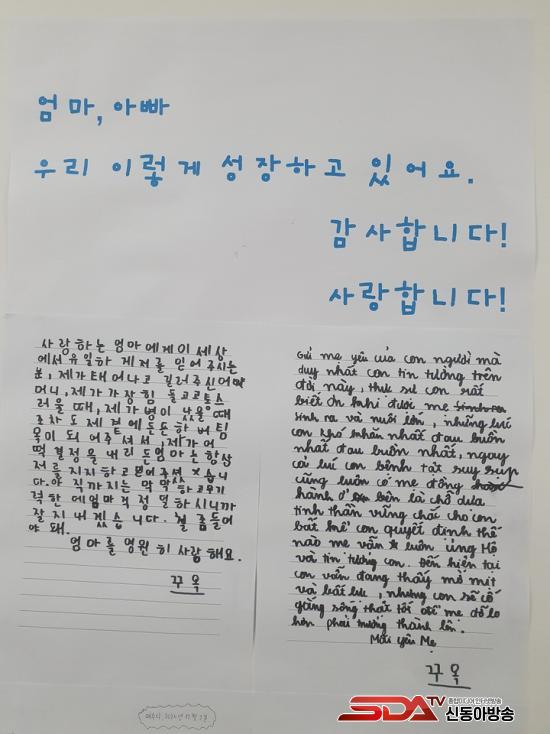 엄마, 아빠
우리 이렇게 성장하고 있어요.
감사합니다!
사랑합니다!
사랑하는 엄마에게이 세상
에서 유일하게저를 믿어주시는
분, 제가 태어나고 길러주신어머
머니, 제가 가장 힘들고고통스
러울 때, 제가병이 났을때
조차도 제 곁에든든한 버팀
목이 되어주셔서, 제가어
떡 결정을 내리든엄마는 항상
저를 지지하고
다. 아직까지는 막막하고무기
력한데엄마걱정덜하시니까
잘지내겠습니다. 철 좀들어
야돼.
엄마를 영원히 사랑해요.
꾸옥
Gửi mẹ yêu của con người mà
duy nhất con tin tưởng trên
đời này, thực sự con rất
biết ơn khi được mẹ
sinh ra và nuôi lớn, những lúc
con khó khăn nhất đau buồn
nhất đau buồn nhất, ngay
cả lúc con bệnh tật suy sụp
cũng luôn có mẹ đồng
hành ở bên là chỗ dựa
tinh thần vững chắc cho con
bất kể con quyết định thế
nào mẹ vẫn luôn ủng hộ
và tin tưởng con. Đến hiện tại
con vẫn đang thấy mờ mịt
và bất lực, nhưng con sẽ cố
gắng sống thật tốt để mẹ đỡ lo
hơn phải trưởng thành lên.
Mãi yêu Mẹ
꾸옥
SDATV
종합미디어 인터넷방송
신동아방송